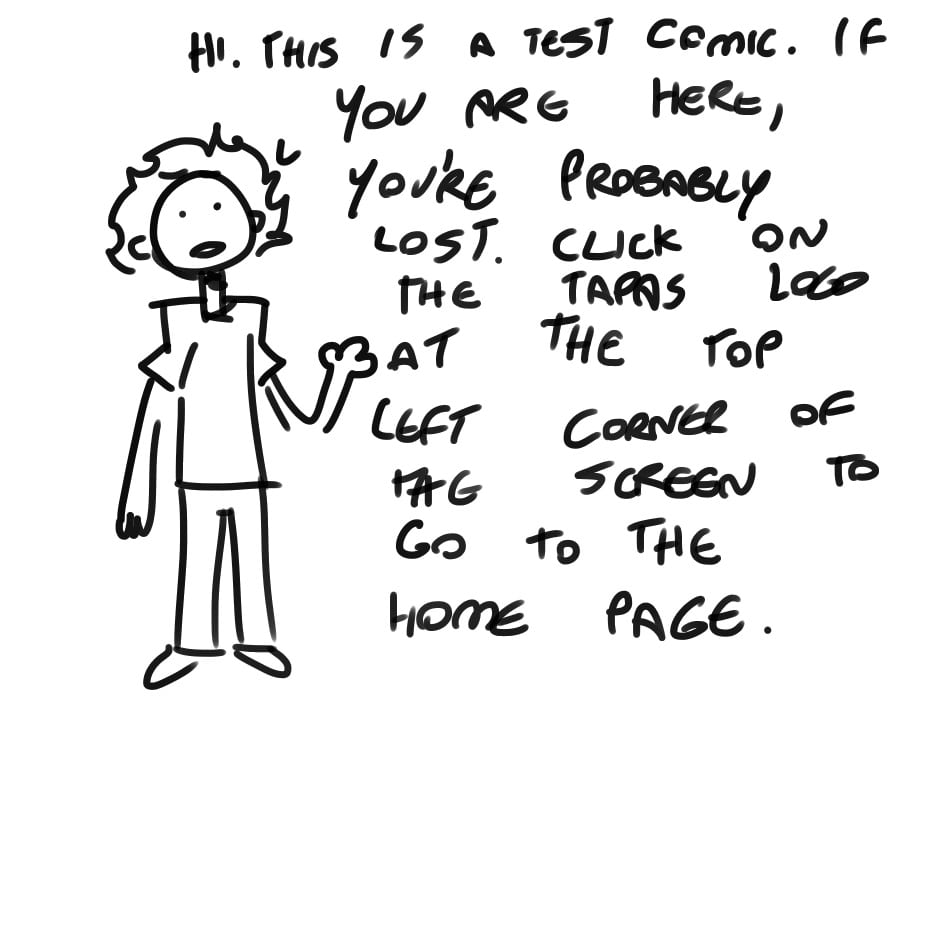 HI. THIS IS A TEST COMIC. IF
YOU ARE HERE,
YOU'RE PROBABLY
LOST. CLICK ON
THE TAPAS LOGO
AT THE TOP
LEFT CORNER OF
THE SCREEN TO
GO TO THE
HOME PAGE.